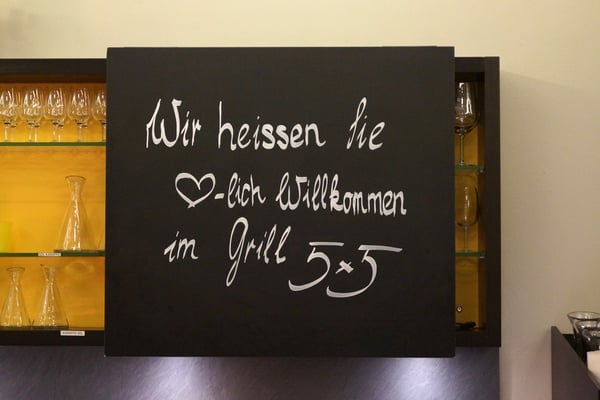 Wir heissen Sie
♡-lich Willkommen
im Grill 5x5